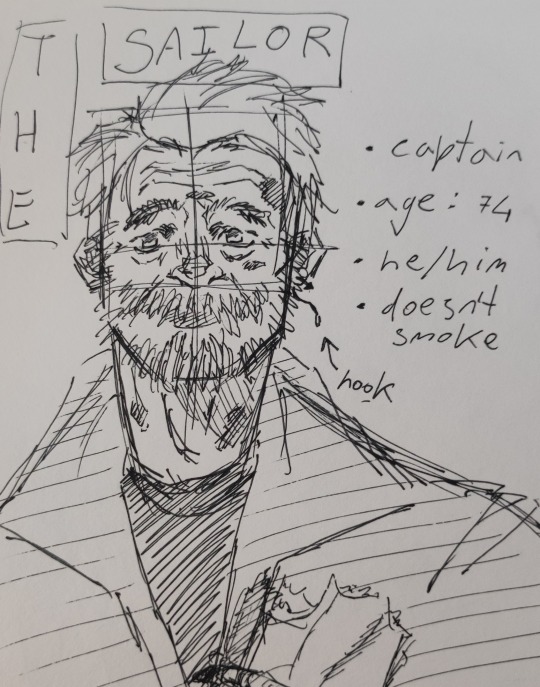 THE
SAILOR
• captain
• age: 74
• he/him
• doesn't
smoke
hook